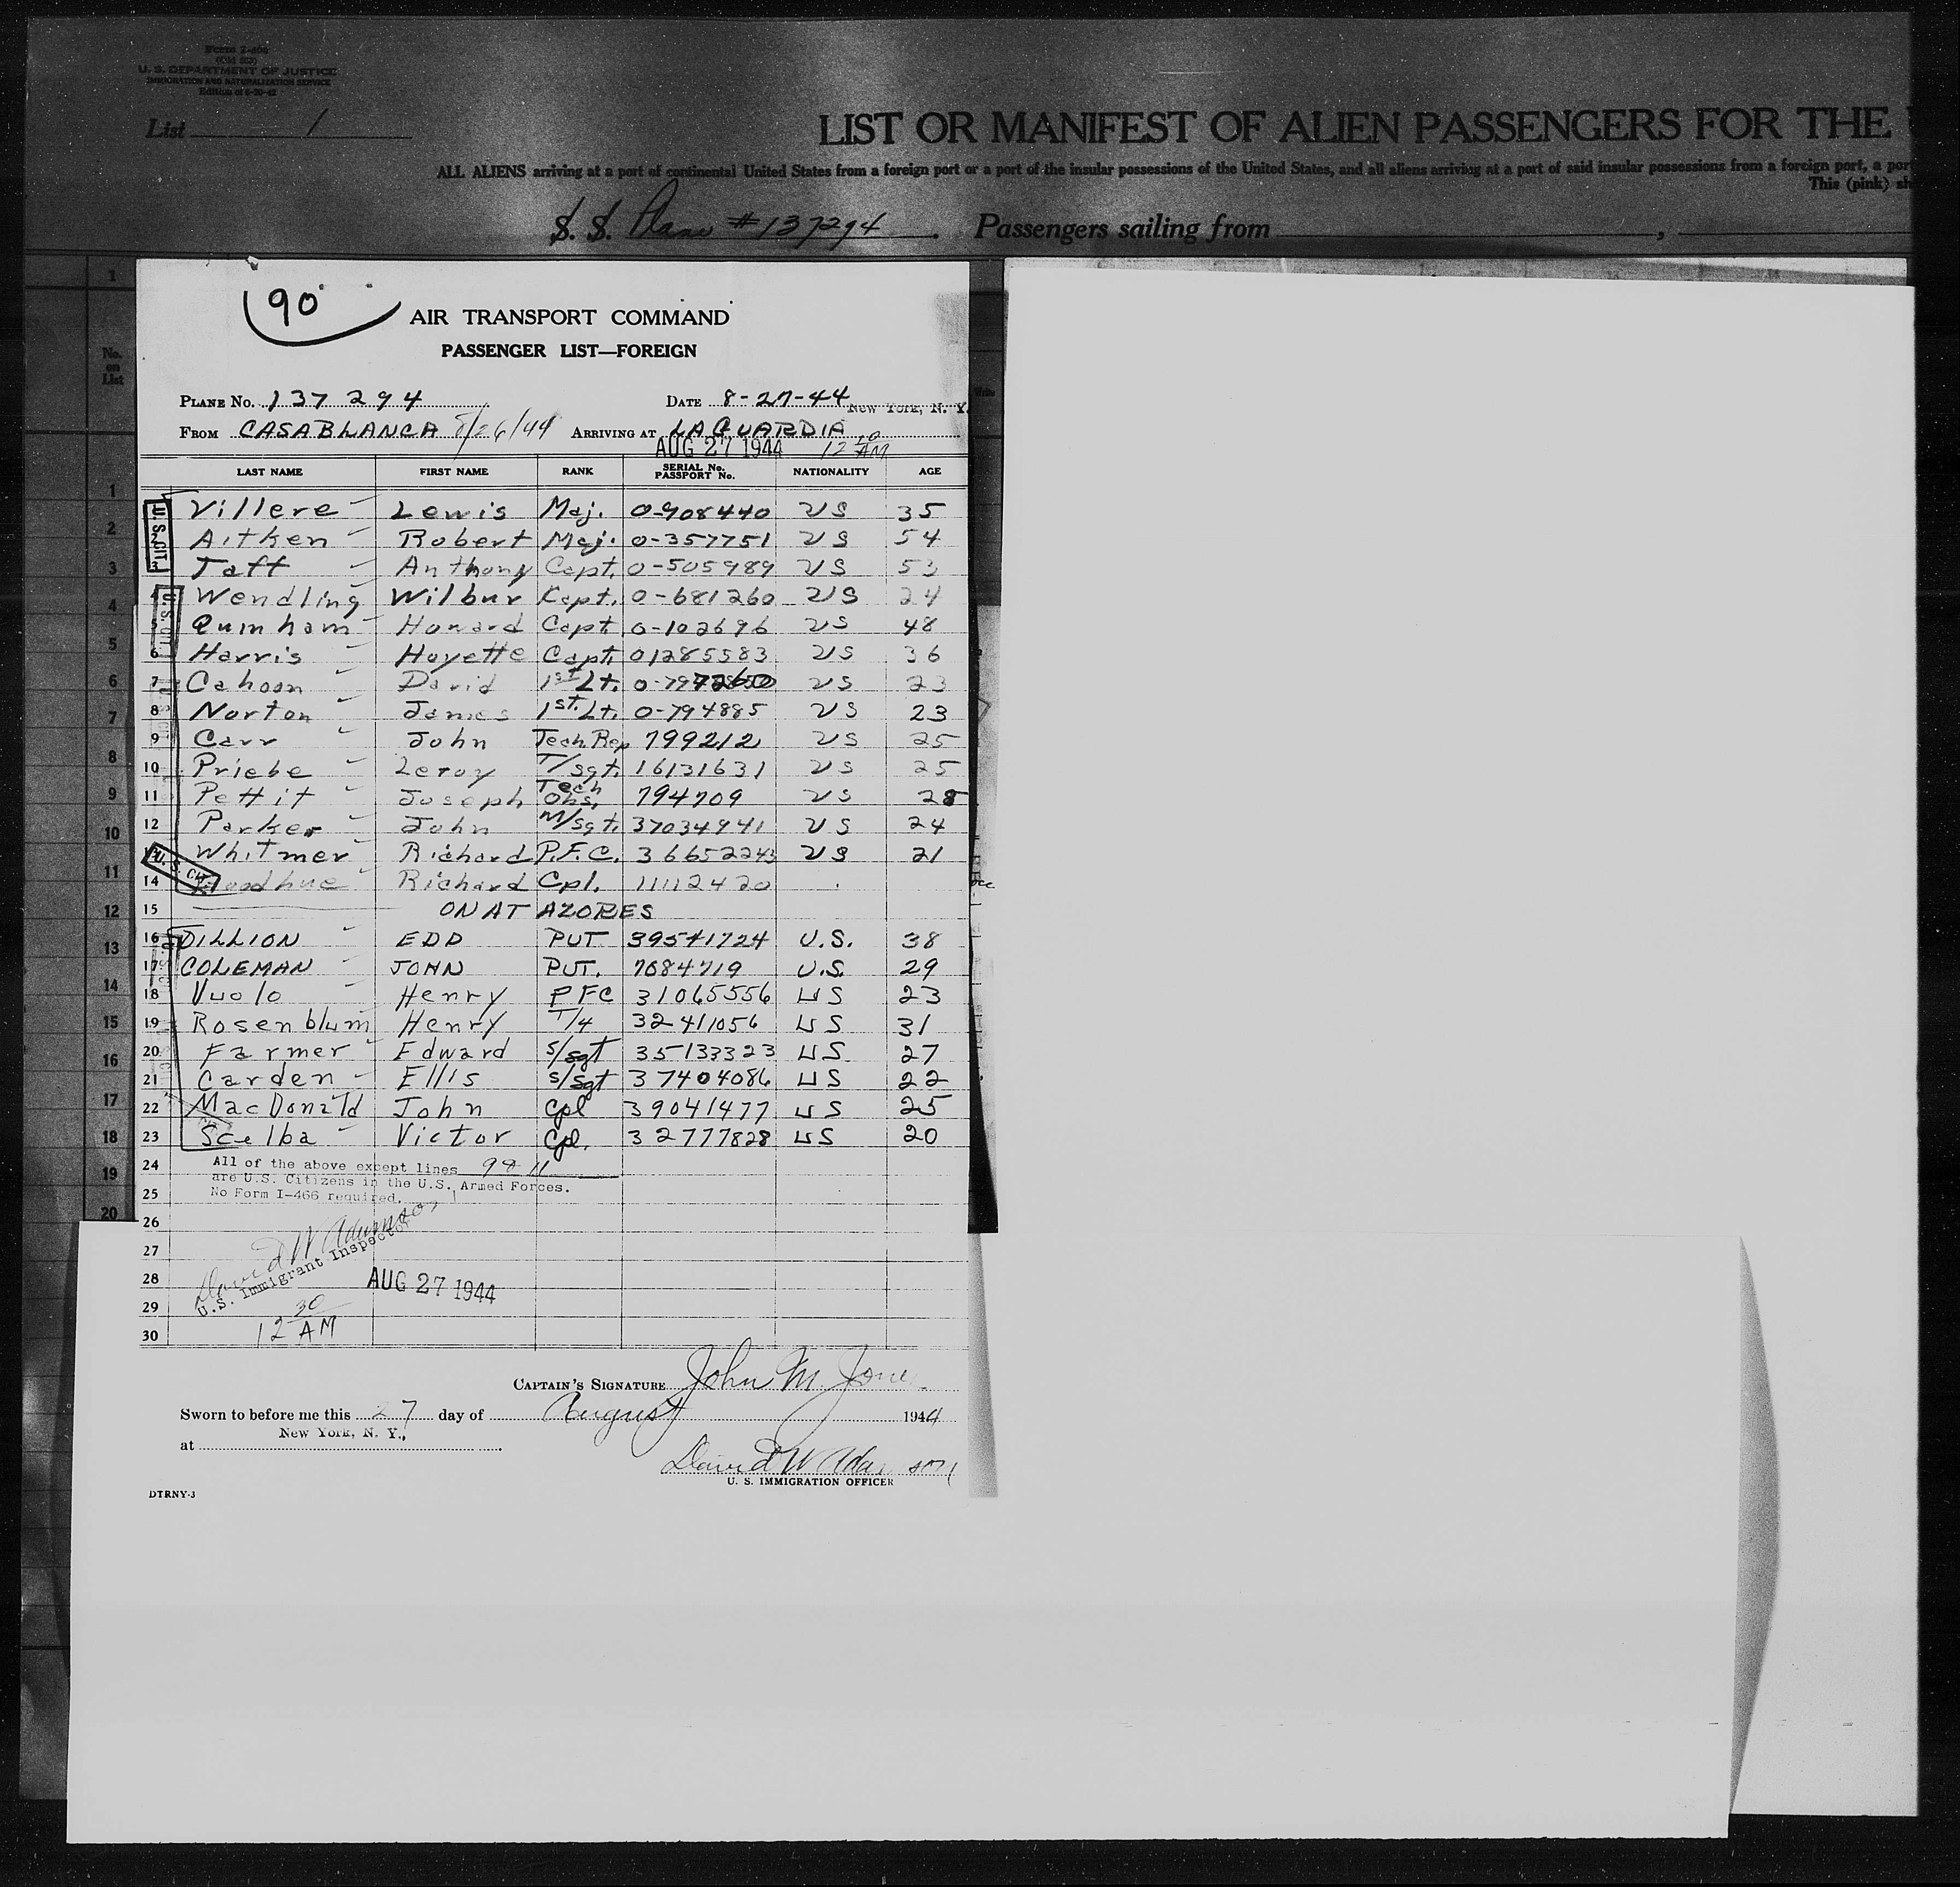 Form I-466
(Old 500)
U. S. DEPARTMENT OF JUSTICE
IMMIGRATION AND NATURALIZATION SERVICE
List 1
LIST OR MANIFEST OF ALIEN PASSENGERS FOR THE
ALL ALIENS arriving at a port of continental United States from a foreign port or a port of the insular possessions of the United States, and all aliens arriving at a port of said insular possessions from a foreign port, a port
This (pink) sh
S. S. Plane #137294. Passengers sailing from
90
AIR TRANSPORT COMMAND
PASSENGER LIST—FOREIGN
PLANE No. 137294 DATE 8-27-44 New York, N. Y.
FROM CASABLANCA 8/26/44 ARRIVING AT LAGUARDIA
AUG 27 1944 12 10 AM
LAST NAME FIRST NAME RANK SERIAL No. PASSPORT No. NATIONALITY AGE
Villere Lewis Maj. 0-908440 US 35
Aitken Robert Maj. 0-357751 US 54
3 Taff Anthony Capt. 0-505989 US 53
4 Wendling Wilbur Capt. 0-681260 US 24
5 Quinham Howard Capt. 0-102696 US 48
6 Harris Hoyette Capt. 01285583 US 36
7 Cahoon David 1st Lt. US 23
8 Norton James 1st. Lt. 0-794885 US 23
9 Carr John Tech Rep 799212 US 25
10 Priebe Leroy T/sgt. 16131631 US 25
11 Pettit Joseph Tech Obs. 794709 US 28
12 Parker John M/sgt. 37034941 US 24
Whitmer Richard P.F.C. 36652243 US 21
14 Goodhue Richard Cpl. 11112420
15 ON AT AZORES
16 DILLION EDD PVT 39541724 U.S. 38
17 COLEMAN JOHN PVT. 7084719 U.S. 29
18 Vuolo Henry PFC 31065556 US 23
19 Rosenblum Henry T/4 32411056 US 31
20 Farmer Edward S/sgt 35133323 US 27
21 Carden Ellis S/sgt 37404086 US 22
22 MacDonald John Cpl 39041477 US 25
23 Scelba Victor Cpl. 32777828 US 20
24 All of the above except lines 9 & 11
are U.S. Citizens in the U.S. Armed Forces.
25 No Form I-466 required.
26
27 David W Adamson
28 U.S. Immigrant Inspector AUG 27 1944
29
30 12 30 AM
CAPTAIN'S SIGNATURE John M. Jones
Sworn to before me this 27 day of August 1944
New York, N. Y.,
at
David W Adamson
U. S. IMMIGRATION OFFICER
DTRNY-3
No. on List
1
2
3
4
5
6
7
8
9
10
11
12
13
14
15
16
17
18
19
20
U. S. CIT.
U. S. CIT.
U. S. CIT.